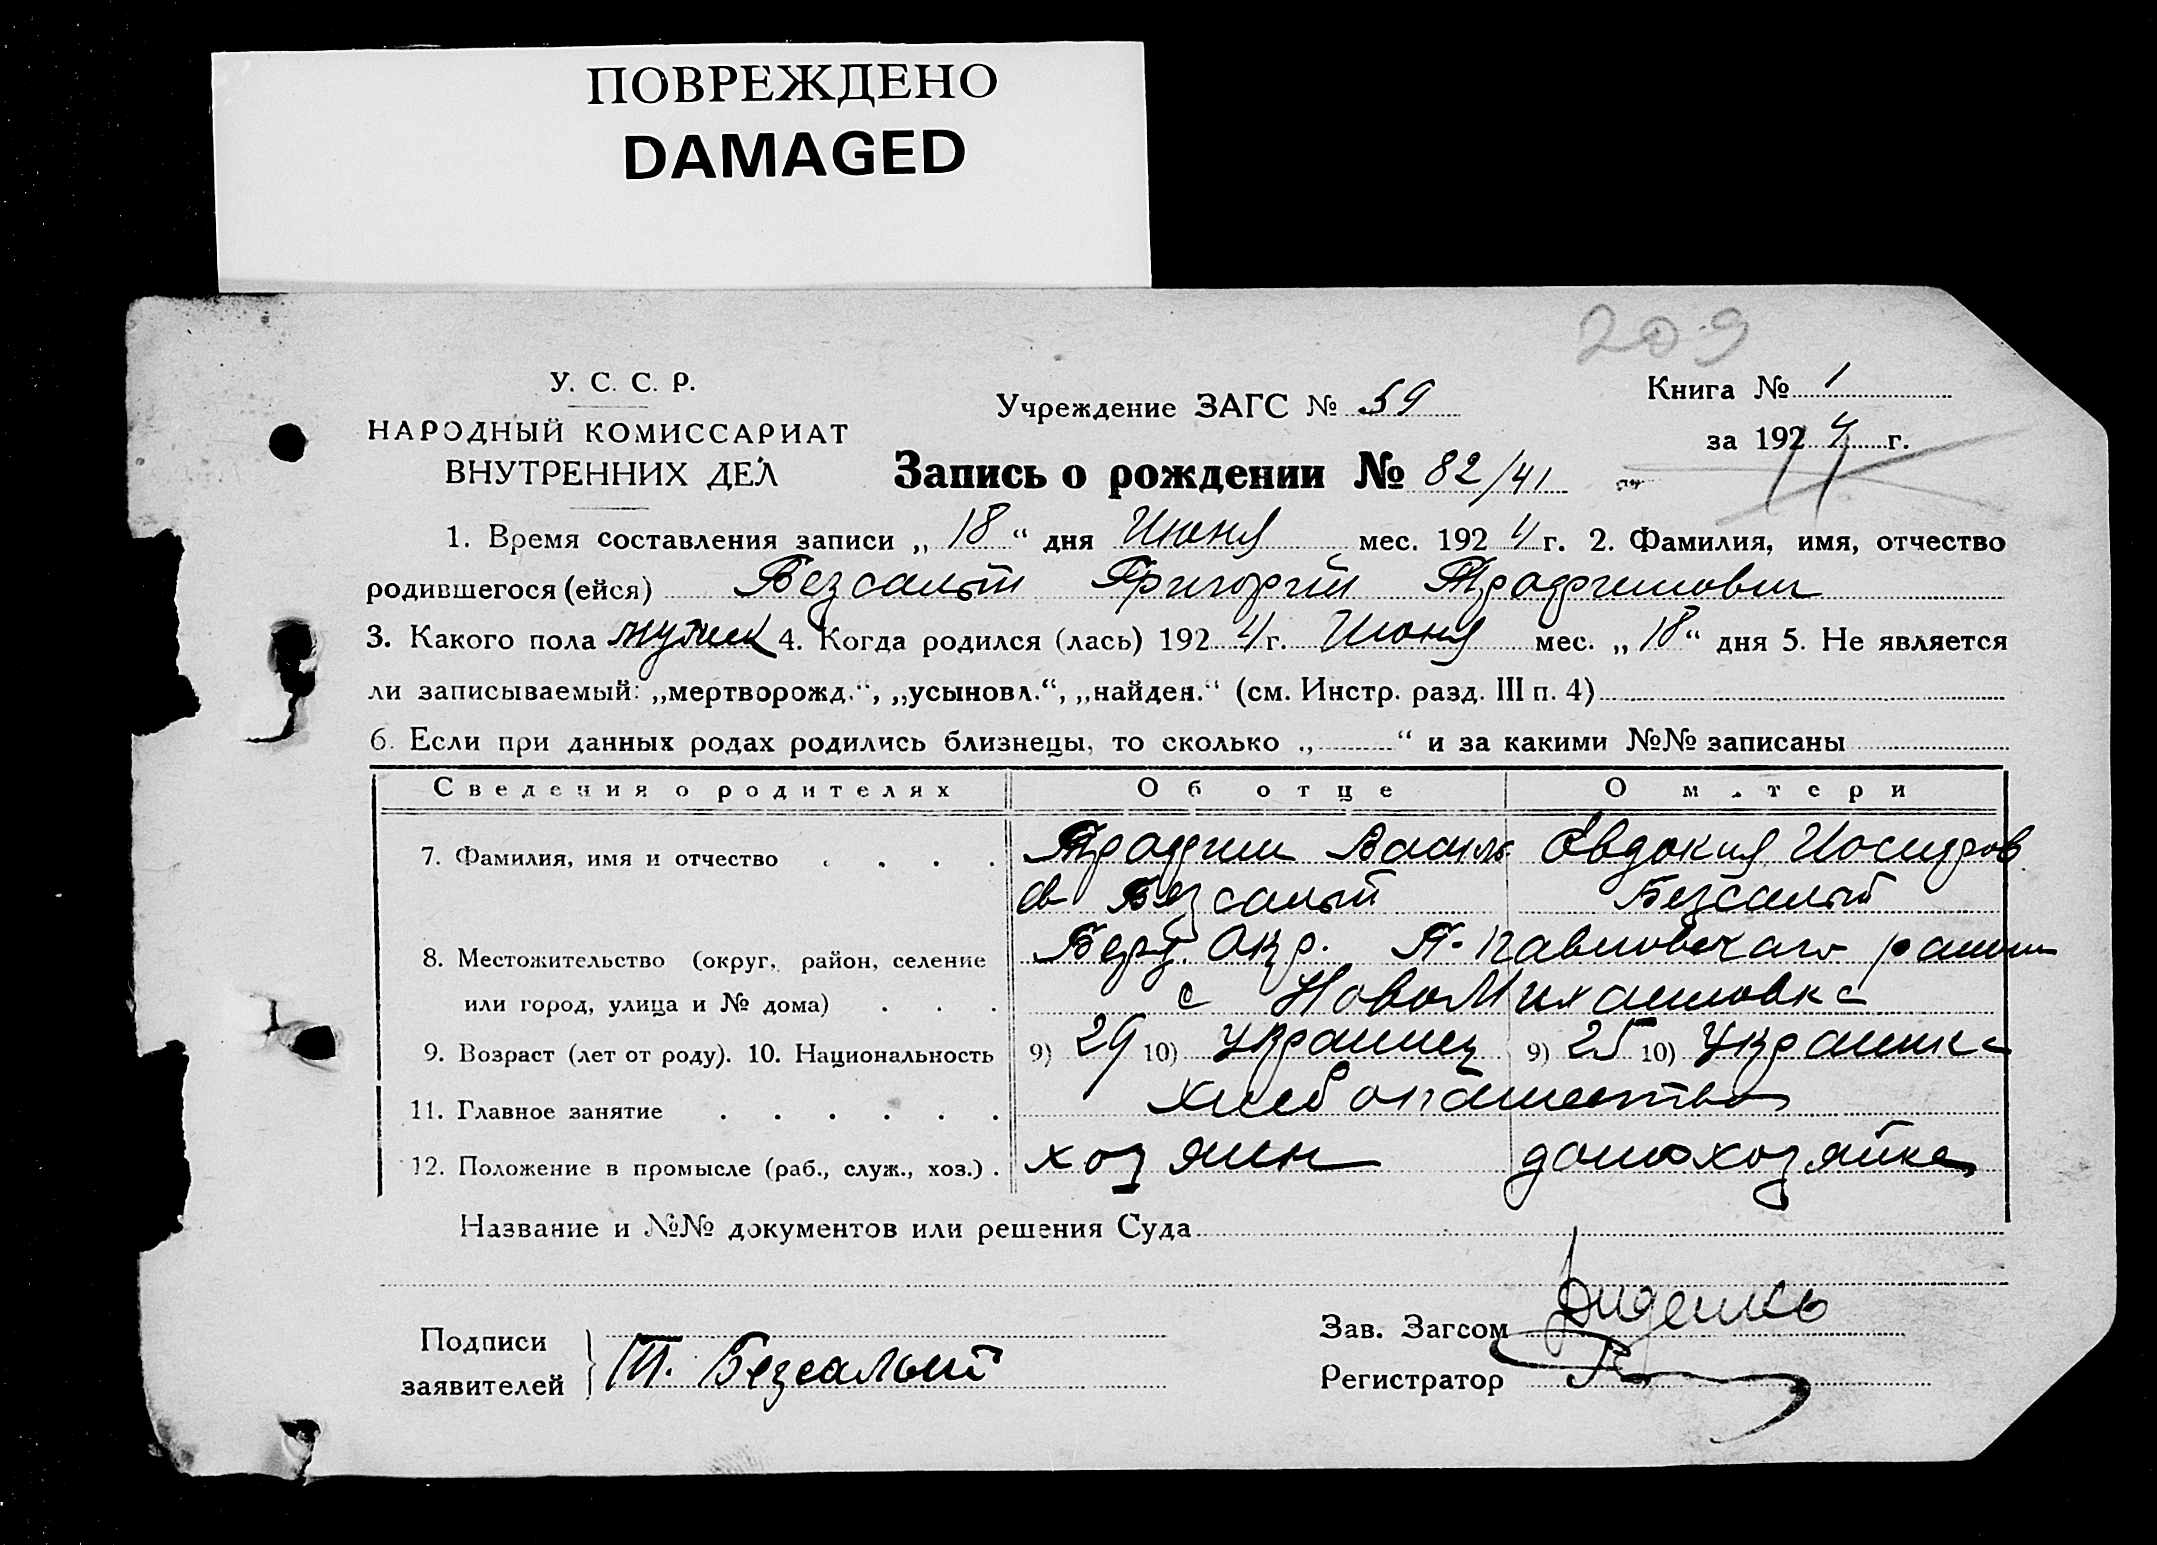 ПОВРЕЖДЕНО
DAMAGED
209
У. С. С. Р.
НАРОДНЫЙ КОМИССАРИАТ
ВНУТРЕННИХ ДЕЛ
Учреждение ЗАГС № 59
Книга № 1
за 1924 г.
Запись о рождении № 82/41
1. Время составления записи „18“ дня Июня мес. 1924 г. 2. Фамилия, имя, отчество
родившегося (ейся) Безсалый Григорий Трофимович
3. Какого пола мужск 4. Когда родился (лась) 1924 г. Июня мес. „18“ дня 5. Не является
ли записываемый: „мертворожд.“, „усыновл.“, „найден.“ (см. Инстр. разд. III п. 4)
6. Если при данных родах родились близнецы, то сколько „ “ и за какими №№ записаны
Сведения о родителях Об отце О матери
7. Фамилия, имя и отчество . . . . Трофим Василь Евдокия Иосифов
ев Безсалый Безсалый
8. Местожительство (округ, район, селение Берд. Окр. П-Павловскаго района
или город, улица и № дома) . . . с НовоМихайловка
9. Возраст (лет от роду). 10. Национальность 9) 29 10) Украинец 9) 25 10) Украинка
11. Главное занятие . . . . . . Хлебопашество
12. Положение в промысле (раб., служ., хоз.) . хозяин домохозяйка
Название и №№ документов или решения Суда
Подписи
заявителей
Т. Безсалый
Зав. Загсом
Регистратор